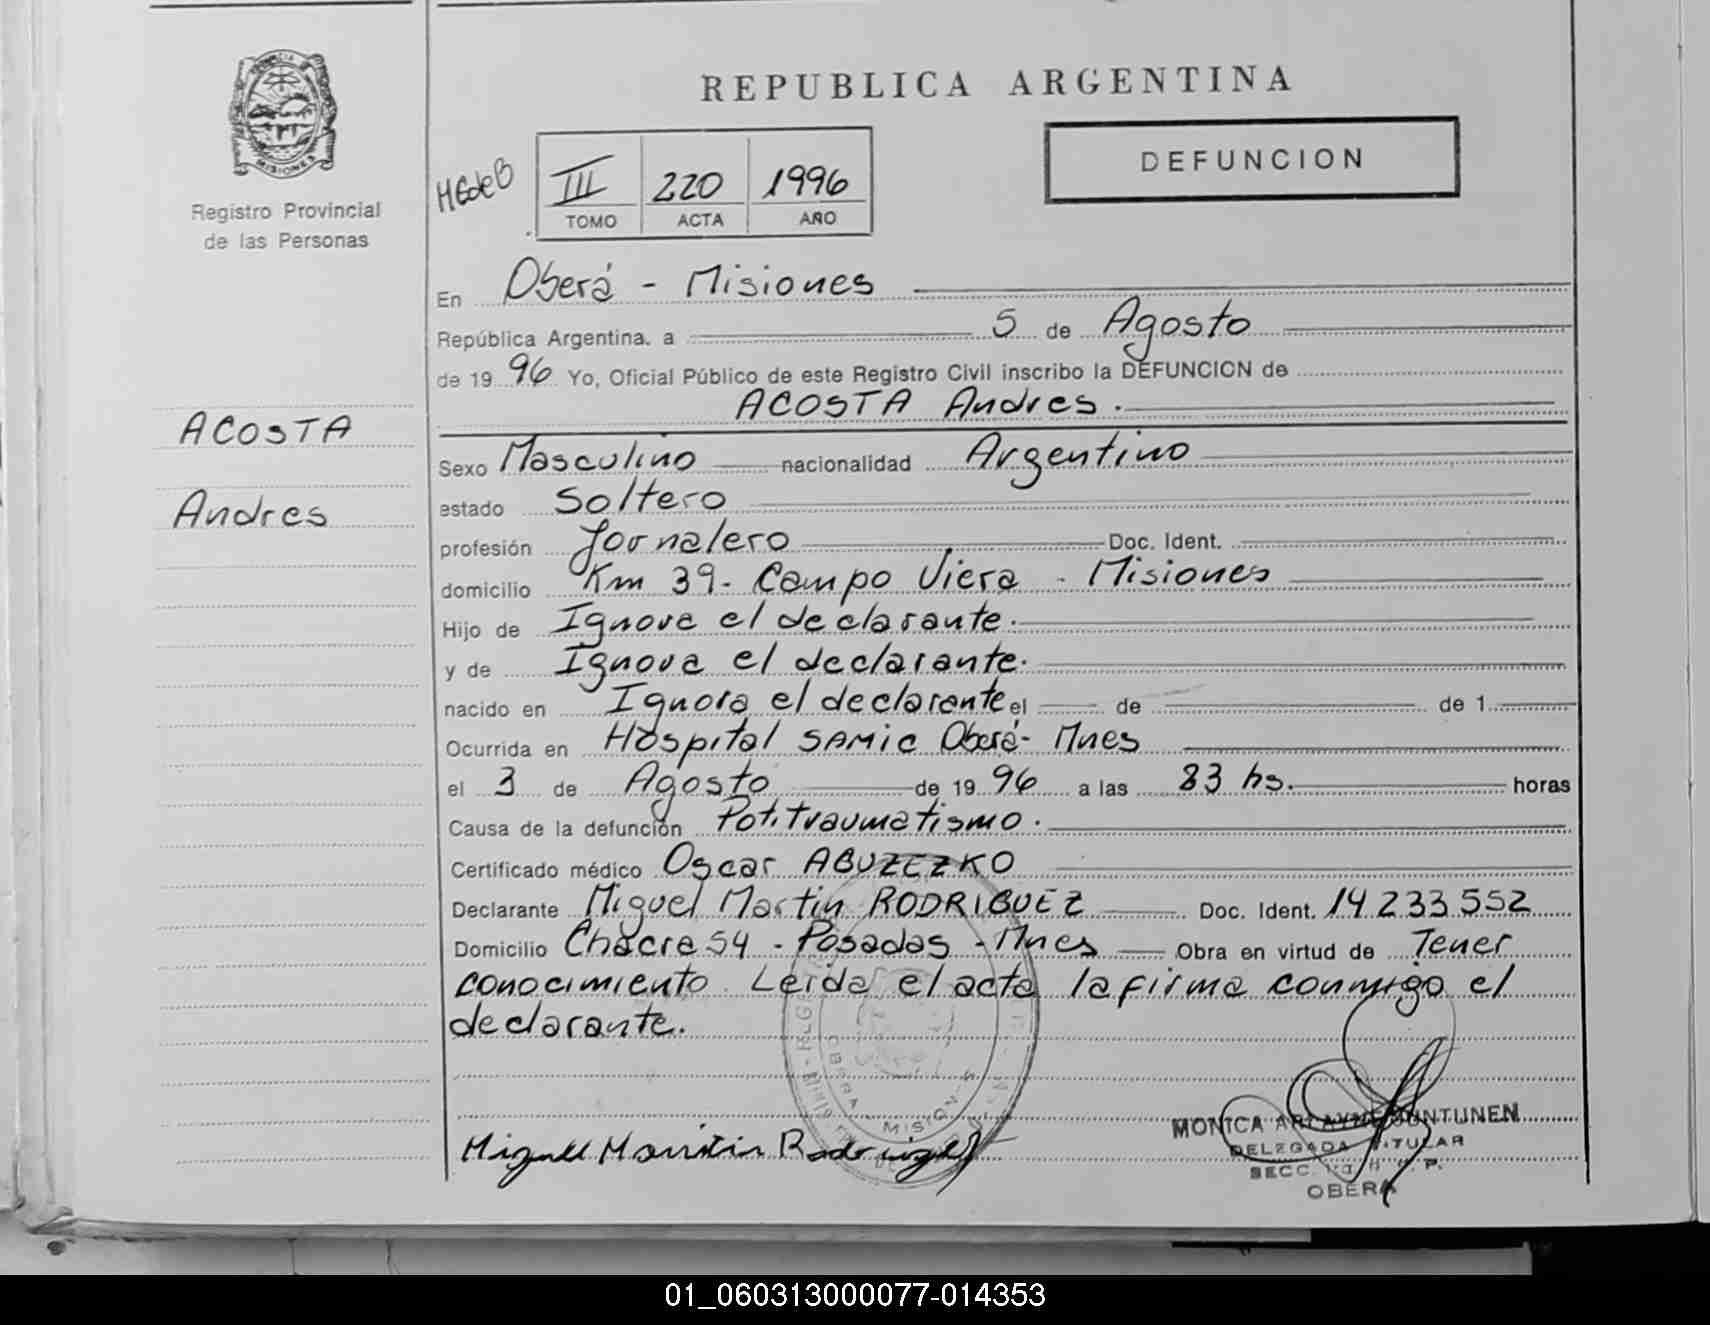 REPUBLICA ARGENTINA
PROVINCIA DE
MISIONES
Registro Provincial
de las Personas
HGdeB
III 220 1996
TOMO ACTA AÑO
DEFUNCION
En Oberá - Misiones
República Argentina. a 5 de Agosto
de 19 96 Yo, Oficial Público de este Registro Civil inscribo la DEFUNCION de
ACOSTA Andres.
ACOSTA
Andres
Sexo Masculino nacionalidad Argentino
estado Soltero
profesión Jornalero Doc. Ident.
domicilio Km 39 - Campo Viera - Misiones
Hijo de Ignora el declarante.
y de Ignora el declarante.
nacido en Ignora el declarante el de de 1
Ocurrida en Hospital SAMIC Oberá - Mnes
el 3 de Agosto de 19 96 a las 83 hs. horas
Causa de la defunción Politraumatismo.
Certificado médico Oscar
Declarante Miguel Martin RODRIGUEZ Doc. Ident. 14 233 552
Domicilio Chacra 54 - Posadas - Mnes Obra en virtud de Tener
conocimiento. Leida el acta la firma conmigo el
declarante.
OBERA MISIONES
Miguel Martin Rodriguez
MONICA
DELEGADA TITULAR
SECC.
OBERA
01_060313000077-014353